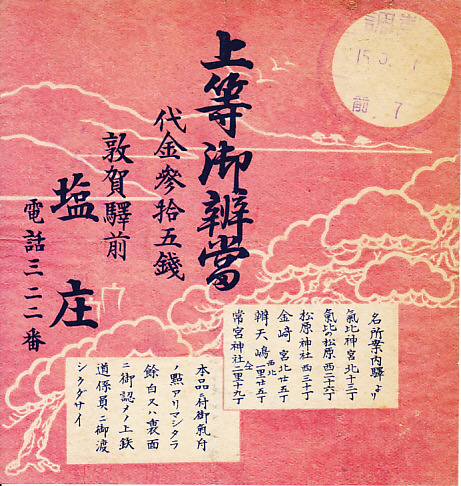 上等御辨當
代金參拾五錢
敦賀驛前
塩荘
電話三二二番
名所案内驛ヨリ
氣比神宮北十三丁
氣比の松原西二十六丁
松原神社西三十丁
金崎宮北廿五丁
辨天嶋西北一里廿五丁
常宮神社仝二里十九丁
本品ニ付御氣付
ノ㸃アリマシタラ
餘白又ハ裏面
ニ御認メノ上鉄
道係員ニ御渡
シクダサイ
15.3.1
前7